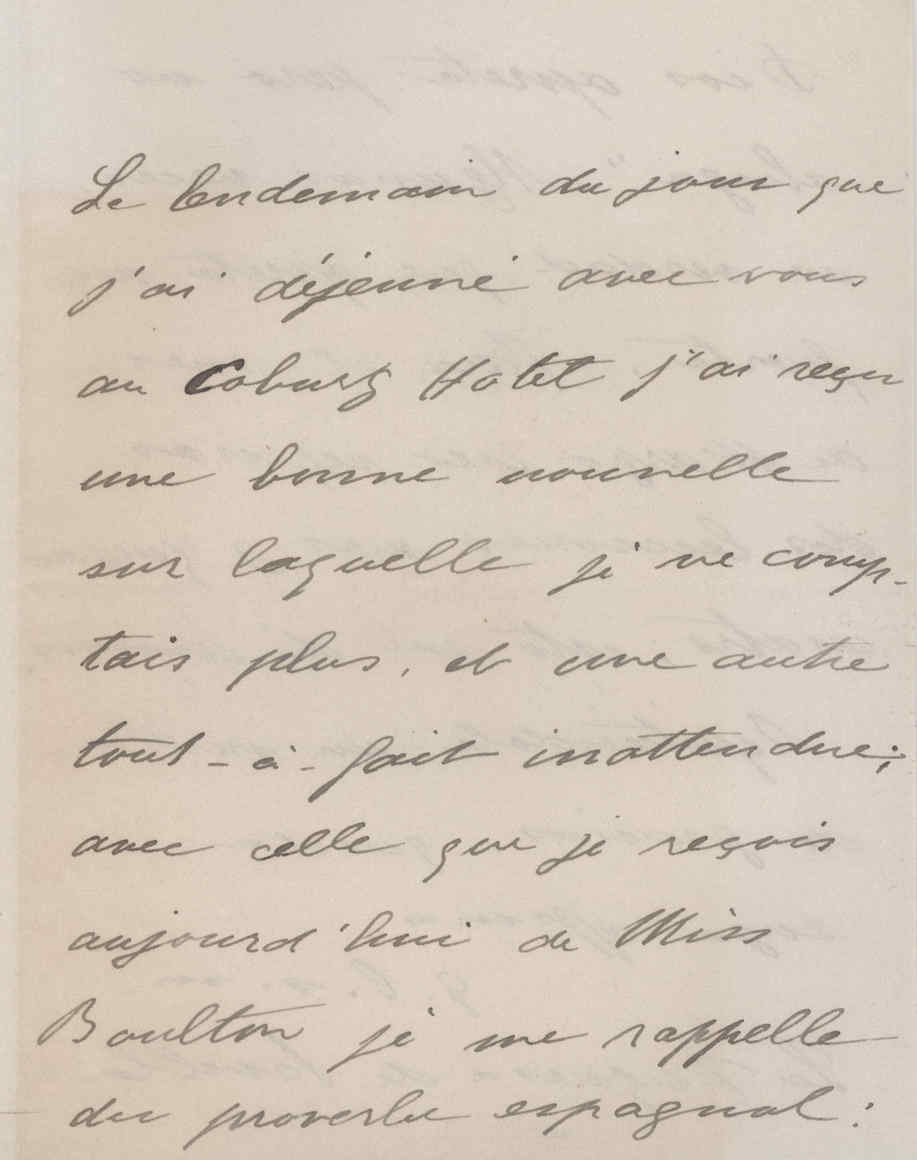 Le lendemain du jour que
j'ai déjeuné avec vous
au Coburg Hotel j'ai reçu
une bonne nouvelle
sur laquelle je ne comp-
tais plus, et une autre
tout-à-fait inattendue;
avec celle que je reçois
aujourd'hui de Miss
Boulton je me rappelle
du proverbe espagnol: